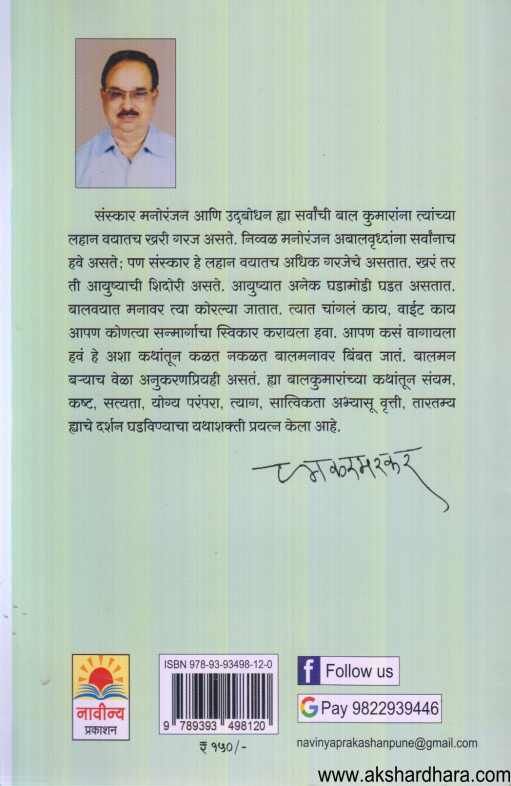 संस्कार मनोरंजन आणि उद्‌बोधन ह्या सर्वांची बाल कुमारांना त्यांच्या
लहान वयातच खरी गरज असते. निव्वळ मनोरंजन अबालवृध्दांना सर्वांनाच
हवे असते; पण संस्कार हे लहान वयातच अधिक गरजेचे असतात. खरं तर
ती आयुष्याची शिदोरी असते. आयुष्यात अनेक घडामोडी घडत असतात.
बालवयात मनावर त्या कोरल्या जातात. त्यात चांगलं काय, वाईट काय
आपण कोणत्या सन्मार्गाचा स्विकार करायला हवा. आपण कसं वागायला
हवं हे अशा कथांतून कळत नकळत बालमनावर बिंबत जातं. बालमन
बऱ्याच वेळा अनुकरणप्रियही असतं. ह्या बालकुमारांच्या कथांतून संयम,
कष्ट, सत्यता, योग्य परंपरा, त्याग, सात्विकता अभ्यासू वृत्ती, तारतम्य
ह्याचे दर्शन घडविण्याचा यथाशक्ती प्रयत्न केला आहे.
करमरकर
नावीन्य
प्रकाशन
ISBN 978-93-93498-12-0
9 789393 498120
₹ १५०/-
f Follow us
G Pay 9822939446
navinyaprakashanpune@gmail.com
www.akshardhara.com